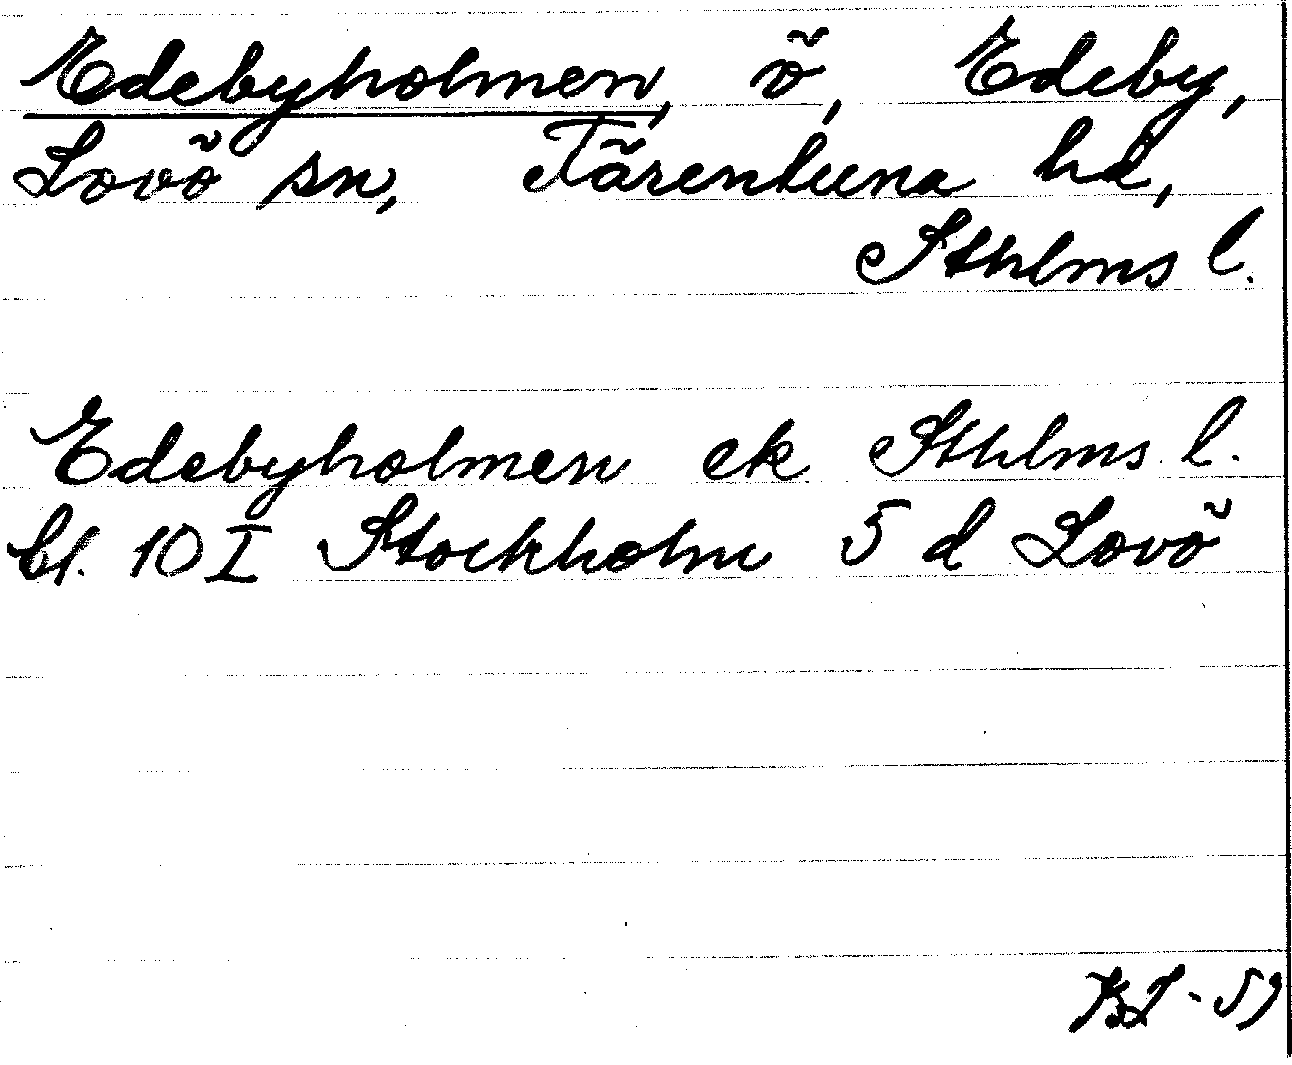 Edebyholmen, ö, Edeby,
Lovö sn, Färentuna hd,
Sthlms l.
Edebyholmen ek Sthlms l.
bl. 10 I Stockholm 5 d Lovö